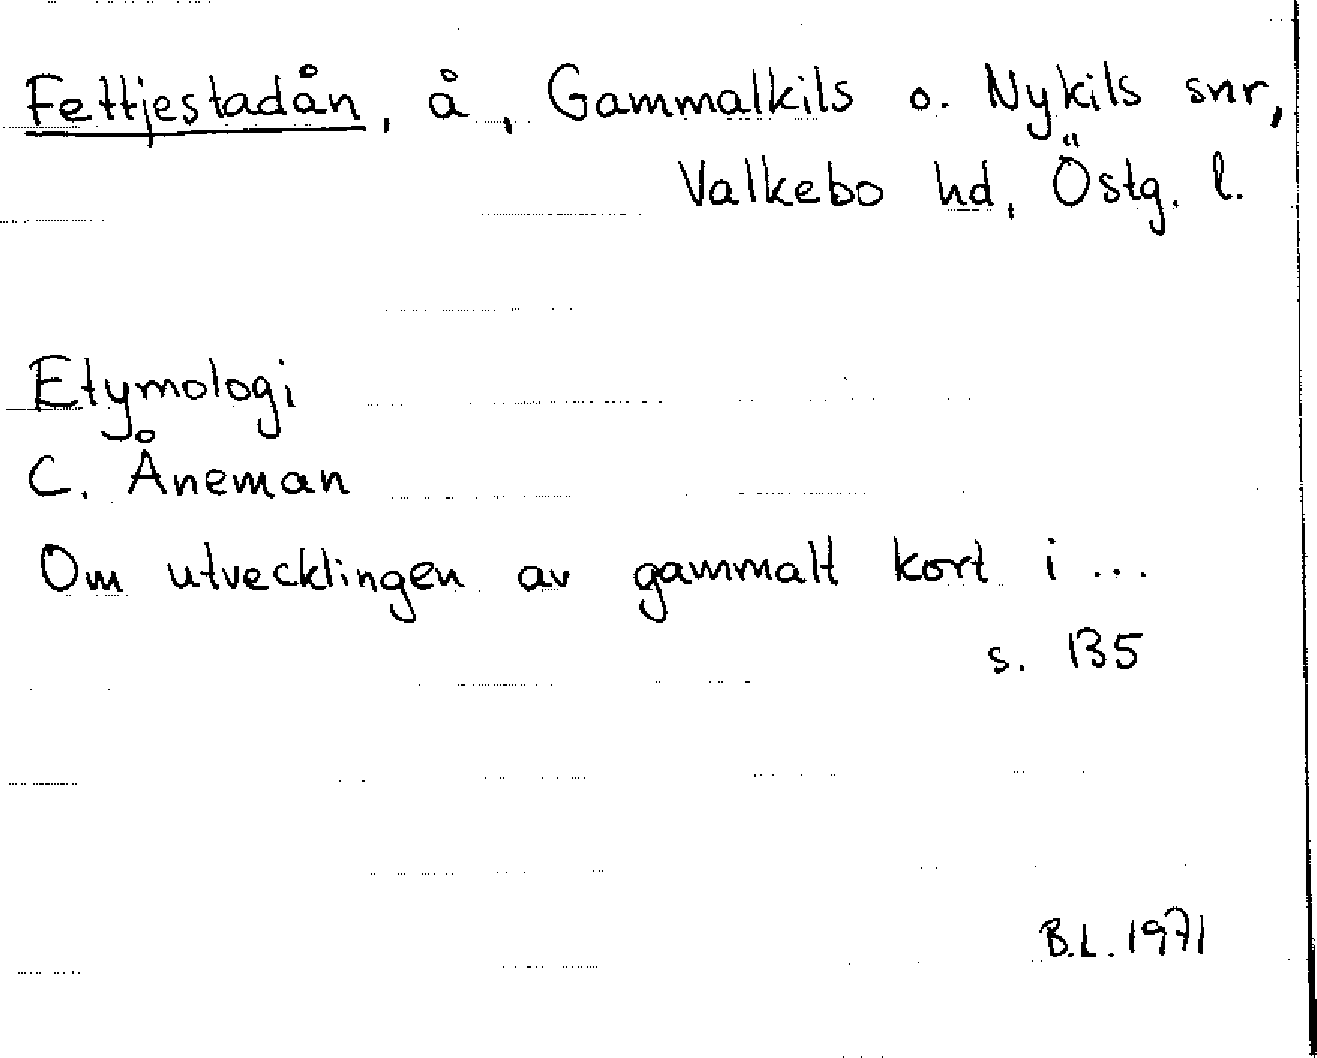 Fettjestadån, å, Gammalkils o. Nykils snr,
Valkebo hd, Östg. l.
Etymologi
C. Åneman
Om utvecklingen av gammalt kort i...
s. 135
B.L. 1971